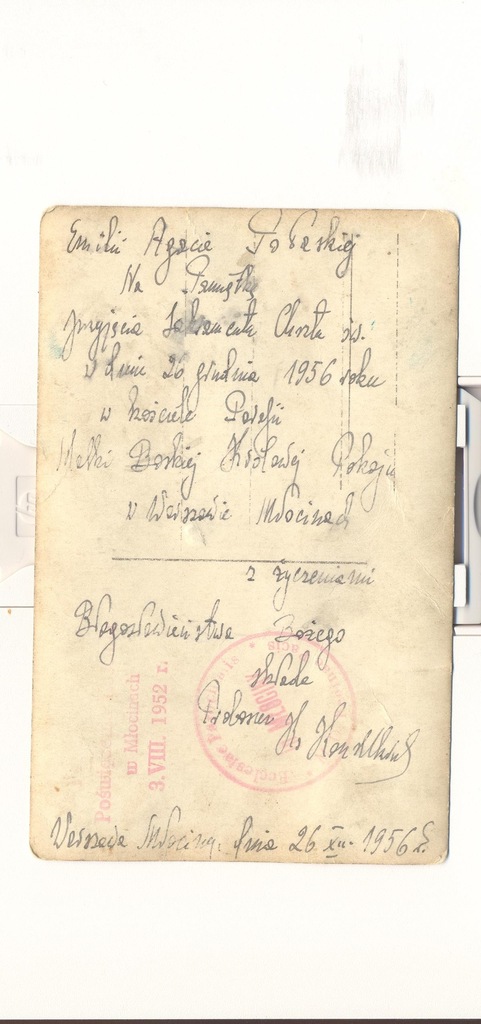 Emilii Agacie
Na Pamiątkę
przyjęcia Sakramentu Chrztu św.
w dniu 26 grudnia 1956 roku
w kościele Parafii
Matki Boskiej Królowej Pokoju
w Warszawie Młocinach
z życzeniami
Błogosławieństwa Bożego
składa
Proboszcz Ks.
Warszawa Młociny. dnia 26 XII. 1956 r.
w Młocinach
3. VIII. 1952 r.